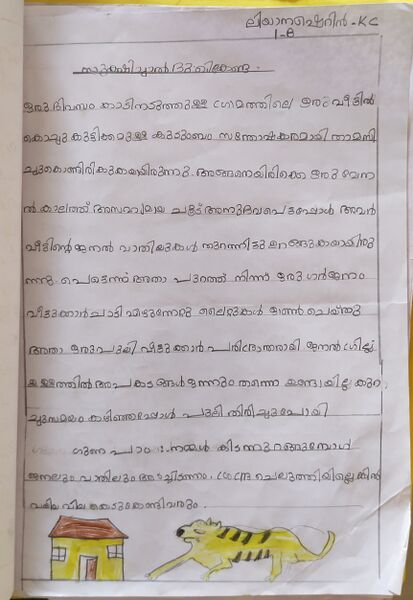 ലിയാനഷെറിൻ-KC
1-B
സൂക്ഷിച്ചാൽ ദുഃഖിക്കേണ്ട.
ഒരു ദിവസം കാടിനടുത്തുള്ള ഗ്രാമത്തിലെ ഒരു വീട്ടിൽ
കൊച്ചു കുട്ടിക്കളുള്ള കുടുംബം സന്തോഷകരമായി താമസി
ച്ചുകൊണ്ടിരിക്കുകയായിരുന്നു. അങ്ങനെയിരിക്കെ ഒരു വേന
ൽ കാലത്ത് അസഹ്യമായ ചൂട് അനുഭവപെട്ടപ്പോൾ അവർ
വീടിന്റെ ജനൽ വാതിലുകൾ തുറന്നിട്ടു ഉറങ്ങുകയായിരു
ന്നു പെട്ടെന്ന് അതാ പുറത്ത് നിന്ന് ഒരു ഗർജ്ജനം
വീട്ടുക്കാർ ചാടി എഴുന്നേറ്റു ലൈറ്റുകൾ ഓൺ ചെയ്തു
അതാ ഒരു പുലി വീട്ടുക്കാർ പരിഭ്രാന്തരായി ജനൽ ഗ്രില്ലു
ള്ളത്തിൽ അപകടങ്ങൾ ഒന്നും തന്നെ ഉണ്ടായില്ല കുറ
ച്ചുസമയം കഴിഞ്ഞപ്പോൾ പുലി തിരിച്ചുപോയി
ഗുണ പാഠം :. നമ്മൾ കിടന്നുറങ്ങുമ്പോൾ
ജനലും വാതിലും അടച്ചിടണം. ശ്രദ്ധ ചെലുത്തിയില്ലെങ്കിൽ
വലിയ വില കൊടുക്കേണ്ടിവരും.